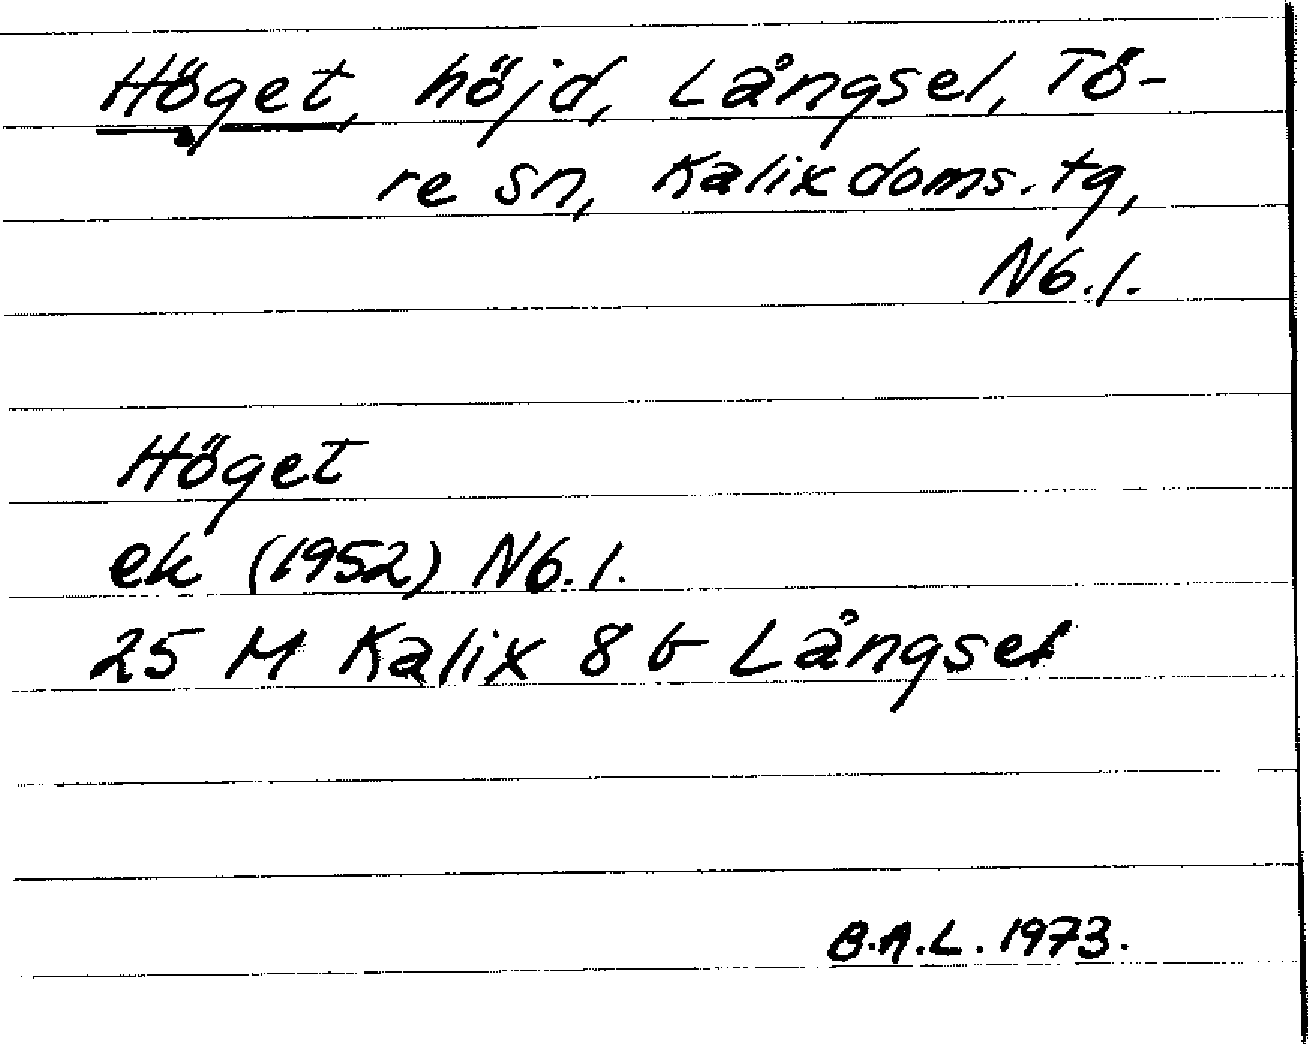 Höget, höjd, Långsel, Tö-
re sn, Kalix doms. tg,
Nb.l.
Höget
ek (1952) Nb.l.
25 M Kalix 8 b Långsel
B.A.L. 1973.